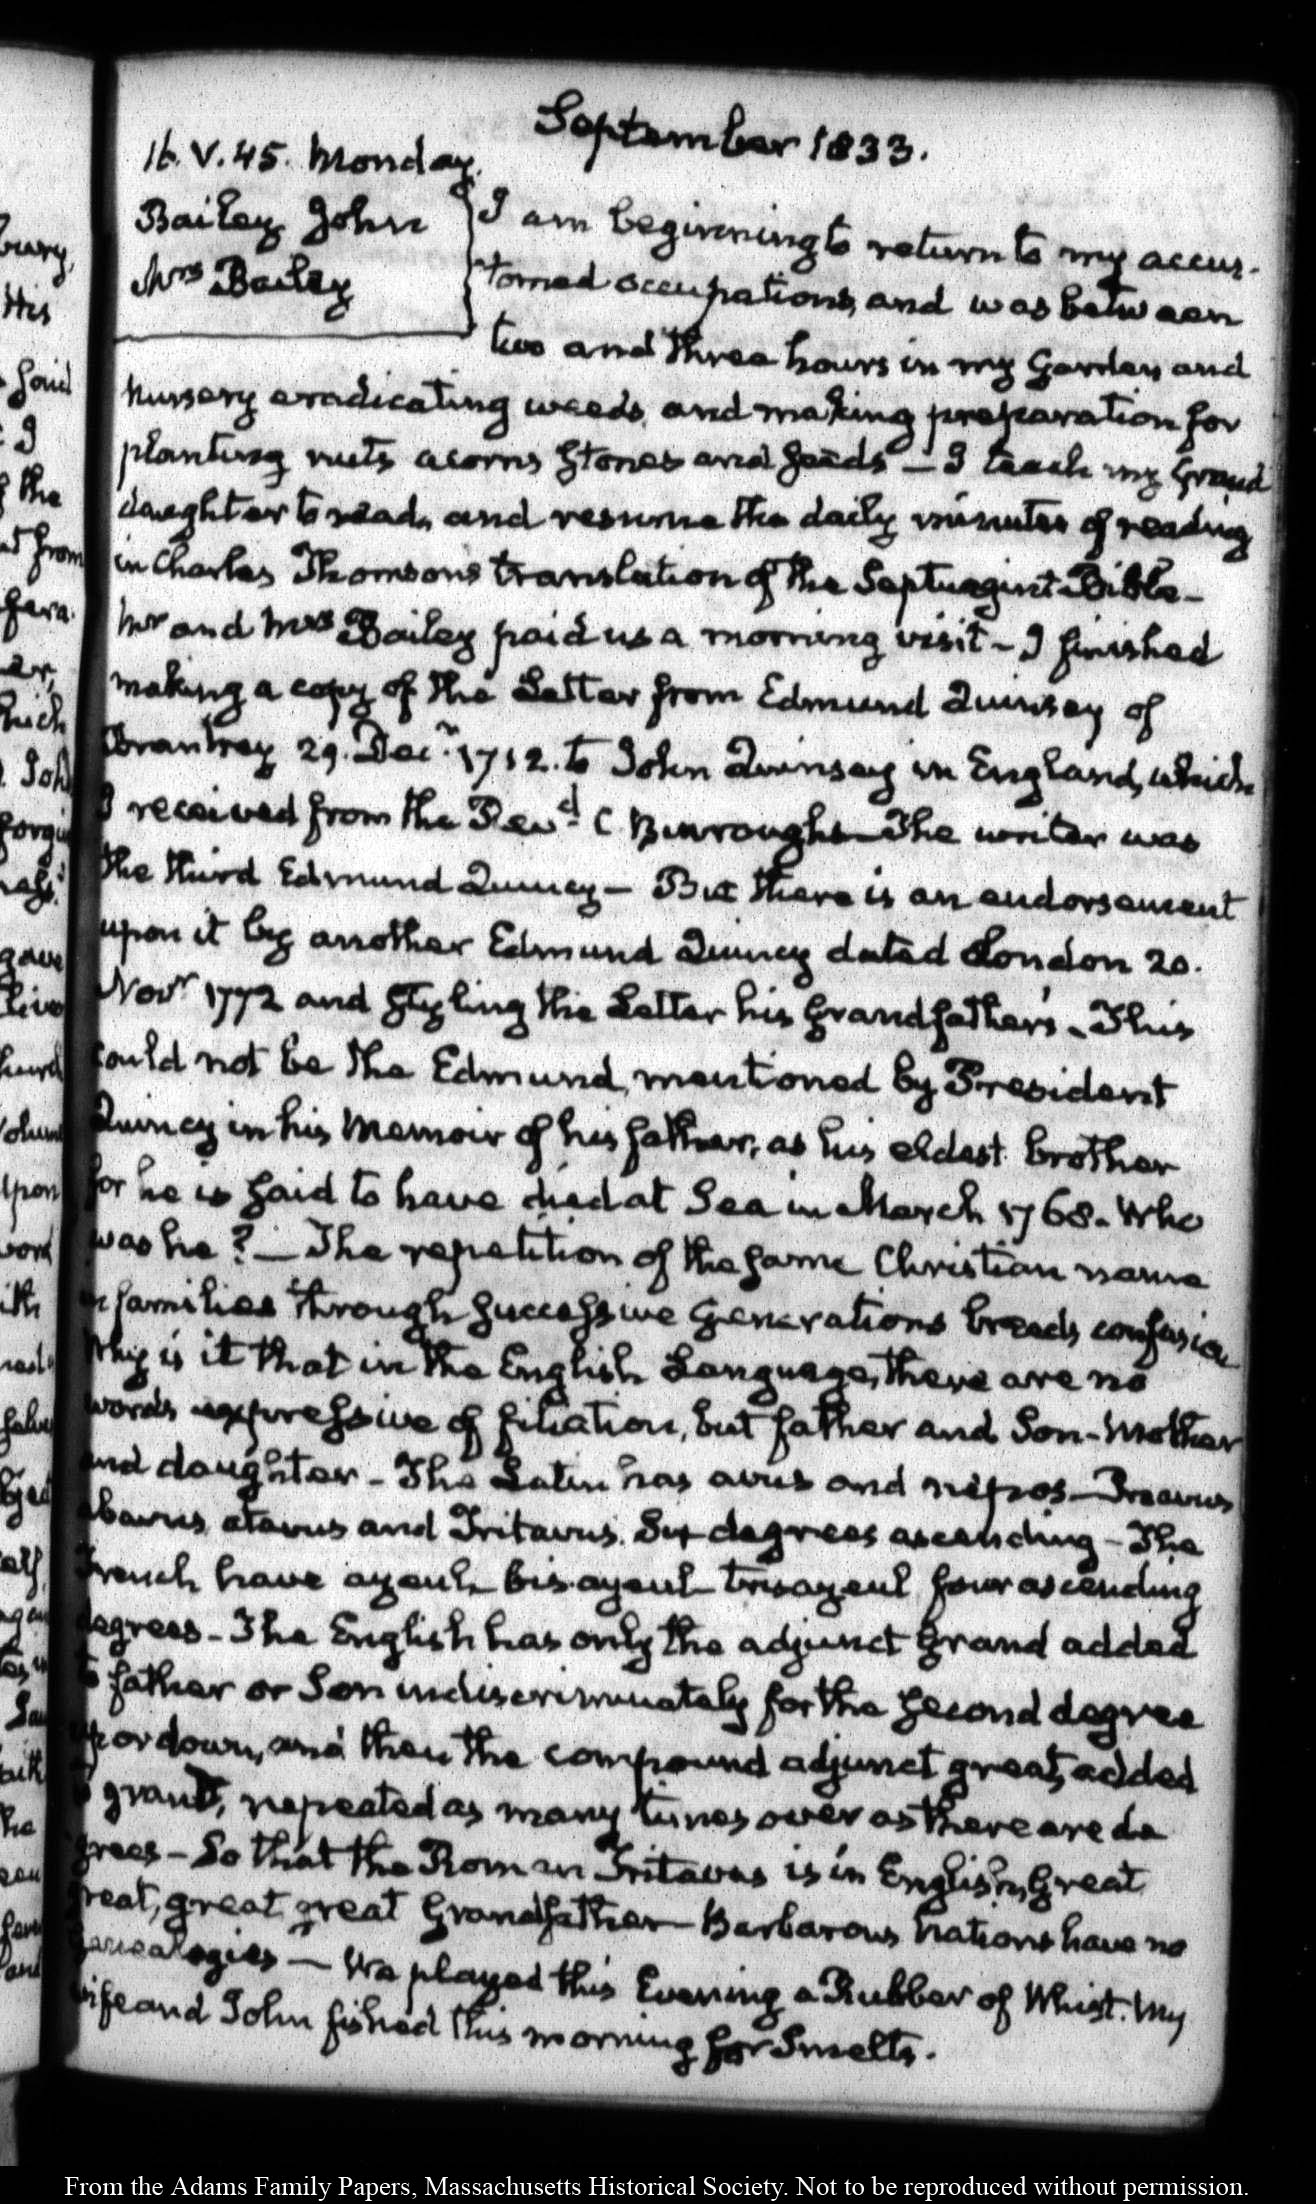 September 1833.
16. V. 45. Monday.
Bailey John
Mrs Bailey
I am beginning to return to my accus-
tomed occupations, and was between
two and three hours in my Garden and
Nursery eradicating weeds and making preparation for
planting nuts acorns stones and seeds — I teach my Grand
daughter to read, and resume the daily minutes of reading
in Charles Thomson's translation of the Septuagint Bible —
Mr and Mrs Bailey paid us a morning visit — I finished
making a copy of the Letter from Edmund Quinsey of
Brantrey 29. Decr. 1712. to John Quinsey in England, which
I received from the Revd. C. Burroughs — The writer was
the third Edmund Quincy — But there is an endorsement
upon it by another Edmund Quincy dated London 20.
Novr 1772 and styling the Letter his Grandfather's. This
could not be the Edmund, mentioned by President
Quincy in his Memoir of his father, as his eldest brother
for he is said to have died at Sea in March 1768. Who
was he? — The repetition of the same Christian name
in families through successive Generations breeds confusion
Why is it that in the English Language, there are no
words expressive of filiation, but father and Son — Mother
and daughter — The Latin has avus and nepos — Proavus
abavus, atavus and Tritavus. Six degrees ascending — The
French have ayeul, bis-ayeul trisayeul four ascending
degrees — The English has only the adjunct Grand added
to father or Son indiscriminately for the second degree
up or down, and then the compound adjunct great, added
to grand, repeated as many times over as there are de
grees — So that the Roman Tritavus is in English, Great
great, great great Grandfather — Barbarous Nations have no
Genealogies — We played this Evening a Rubber of Whist. My
wife and John fished this morning for Smelts.
bury,
His
said
I
the
from
fera
er,
hich
John
gave
live
Upon
ith
the
From the Adams Family Papers, Massachusetts Historical Society. Not to be reproduced without permission.